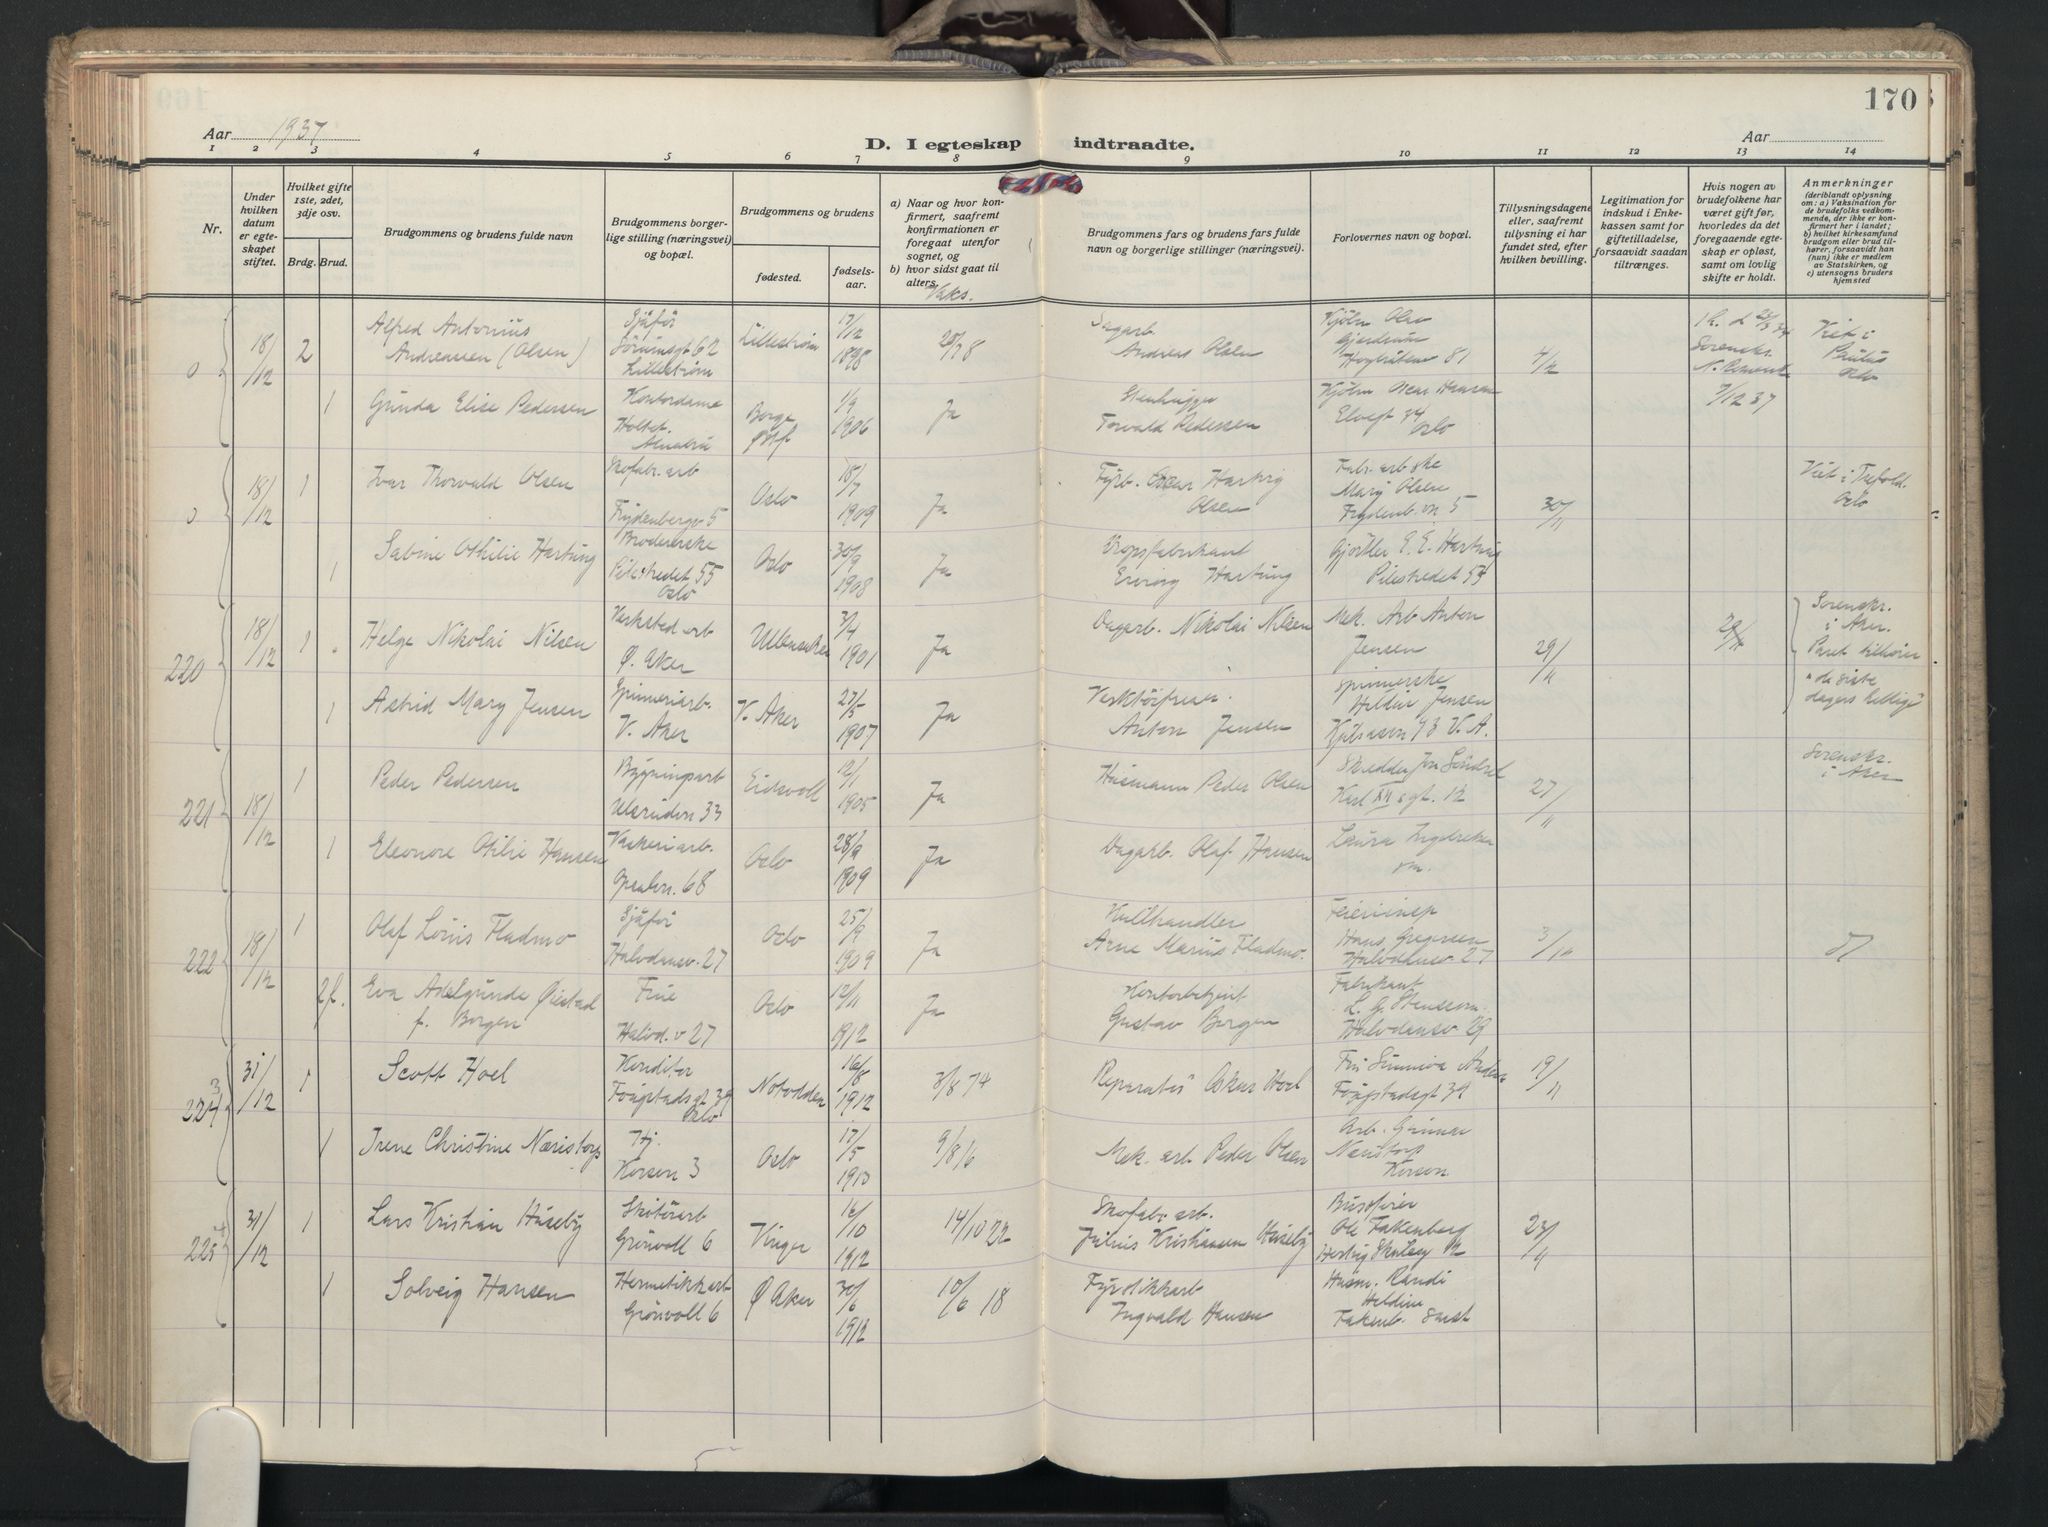 170
Aar 1937
D. I egteskap indtraadte.
Aar
1 2 3 4 5 6 7 8 9 10 11 12 13 14
Nr.
Under hvilken datum er egteskapet stiftet.
Hvilket gifte 1ste, 2det, 3dje osv.
Brdg. Brud.
Brudgommens og brudens fulde navn
Brudgommens borgerlige stilling (næringsvei) og bopæl.
Brudgommens og brudens
fødested.
fødselsaar.
a) Naar og hvor konfirmert, saafremt konfirmationen er foregaat utenfor sognet, og
b) hvor sidst gaat til alters.
Vaks.
Brudgommens fars og brudens fars fulde navn og borgerlige stillinger (næringsvei).
Forlovernes navn og bopæl.
Tillysningsdagene eller, saafremt tillysning ei har fundet sted, efter hvilken bevilling.
Legitimation for indskud i Enkekassen samt for giftetilladelse, forsaavidt saadan tiltrænges.
Hvis nogen av brudefolkene har været gift før, hvorledes da det foregaaende egteskap er opløst, samt om lovlig skifte er holdt.
Anmerkninger
(deriblandt oplysning om: a) Vaksination for de brudefolks vedkommende, der ikke er konfirmert her i landet; b) hvilket kirkesamfund brudgom eller brud tilhører, forsaavidt han (hun) ikke er medlem av Statskirken, og c) utensogns bruders hjemsted
0 18/12 2 Alfred Antonius Andreassen (Olsen) Sjåfør Sørumsgt 62 Lillestrøm Lillestrøm 17/12 1898 Sagarb. Andreas Olsen 4/12 Viet i Paulus Oslo
1 Gunda Elise Pedersen Kontordame Borge Østf 1/9 1906 Ja Stenhugger Torvald Pedersen Oscar Hansen Elvegt 34 Oslo 7/12 37
18/12 1 Ivar Thorvald Olsen Skofabr. arb Frydenbergv 5 Oslo 18/7 1909 Ja Fyrb. Oscar Hartvig Olsen Fabr. arbske Mary Olsen Frydenb. vn 5 30/11 Viet i Oslo
1 Sabine Othilie Hartung Broderske Pilestredet 55 Oslo Oslo 30/9 1908 Ja Hartung Gjørtler E. E. Hartung Pilestredet 55
220 18/12 1 Helge Nikolai Nilsen Verksted arb Ø. Aker Ullensaker 3/4 1901 Ja Dagarb. Nikolai Nilsen Mek. Arb Anton Jensen 29/11 29/11 Sorenskr. i Aker. Paret tilhører "de siste dagers hellige"
1 Astrid Mary Jensen Spinneriarb. V. Aker V. Aker 27/5 1907 Ja Anton Jensen Spinnerske Jensen Kjelsåsvn 43 V. A.
221 18/12 1 Peder Pedersen Bygningsarb Ulsrudvn 33 Eidsvoll 12/1 1905 Ja Husmann Peder Olsen Skredder Karl XII sgt. 12 27/11 Sorenskr. i Aker
1 Eleonore Otilie Hansen Vaskeriarb. 68 Oslo 28/9 1909 Ja Dagarb. Olaf Hansen Laura sm.
222 18/12 1 Olaf Louis Fladmo Sjåfør Halvdansv. 27 Oslo 25/9 1909 Ja Kullhandler Arne Marius Fladmo. Feierinsp Hans Gregersen Halvdansv 27 3/12
2 f. Eva Adelgunde Øiestad f. Borgen Frue Halvd. v 27 Oslo 12/11 1912 Ja Kontorbetjent Gustav Borgen Fabrikant L. G. Stensson. Halvdansv 29
224 3 31/12 1 Scott Hoel Konditor Fougstadsgt 39 Oslo Notodden 16/8 1912 3/8 74 Reparatør Oskar Hoel Fru Sunniva Fougstadsgt 39 19/11
1 Irene Christine Næristorp Hj. Korsvn 3 Oslo 17/5 1910 9/8 6 Mek. arb Peder Olsen Arb. Gunnar Næristorp Korsvn
225 4 31/12 1 Lars Kristian Huseby Skotøiarb Grønvoll 6 Vinger 16/10 1912 14/10 22 Skofabr. arb. Julius Kristiansen Huseby Bussfører Ole Fakenberg 23/11
1 Solveig Hansen Hermetikkarb Grønvoll 6 Ø Aker 30/6 1912 10/6 18 Fyrstikkarb Ingvald Hansen Husm. Randi Heldine Fakenb. Samst